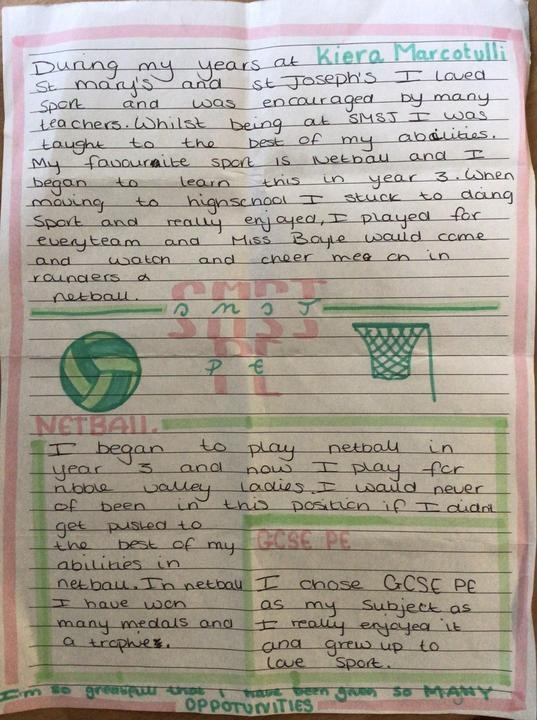 Kiera Marcotulli
During my years at
St mary's and St Joseph's I loved
Sport and was encouraged by many
teachers. Whilst being at SMSJ I was
taught to the best of my abilities.
My favourite sport is Netball and I
began to learn this in year 3. When
moving to highschool I stuck to doing
Sport and really enjoyed, I played for
everyteam and Miss Boyle would come
and watch and cheer me on in
rounders a
netball.
S M S J
P E
NETBALL.
I began to play netball in
year 3 and now I play for
ribble valley ladies. I would never
of been in this position if I didnt
get pushed to
the best of my
abilities in
netball. In netball
I have won
many medals and
a trophies.
GCSE PE
I chose GCSE PE
as my subject as
I really enjoyed it
and grew up to
love sport.
I'm so greatfull that I have been given so MANY
OPPOTUNITIES